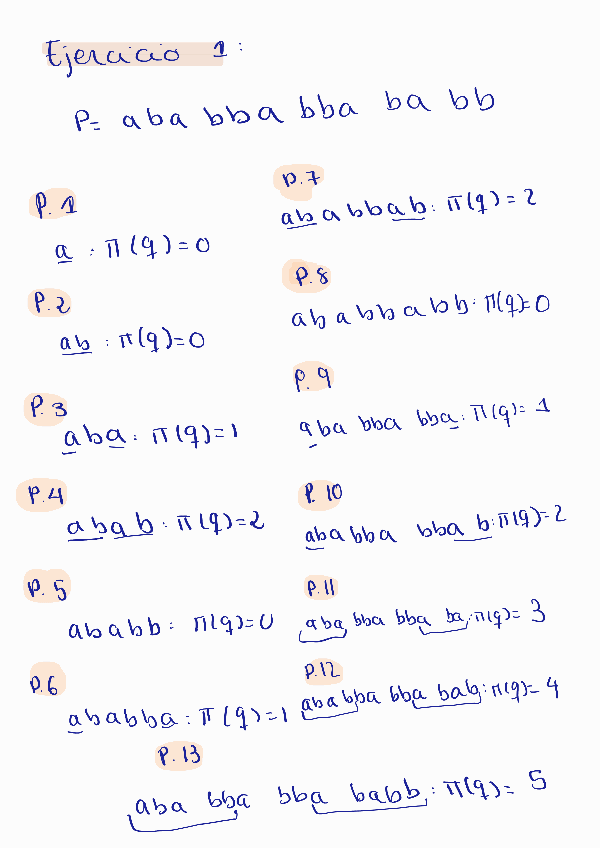 Ejercicio 1:
P= aba bba bba ba bb
P.1
a : π(q)=0
P.2
ab : π(q)=0
P.3
aba : π(q)=1
P.4
abab : π(q)=2
P.5
ababb : π(q)=0
P.6
ababba : π(q)=1
P.7
ababbab : π(q)=2
P.8
ababbabb : π(q)=0
P.9
aba bba bba : π(q)= 1
P.10
aba bba bba b : π(q)=2
P.11
aba bba bba ba : π(q)= 3
P.12
aba bba bba bab : π(q)= 4
P.13
aba bba bba babb : π(q)= 5